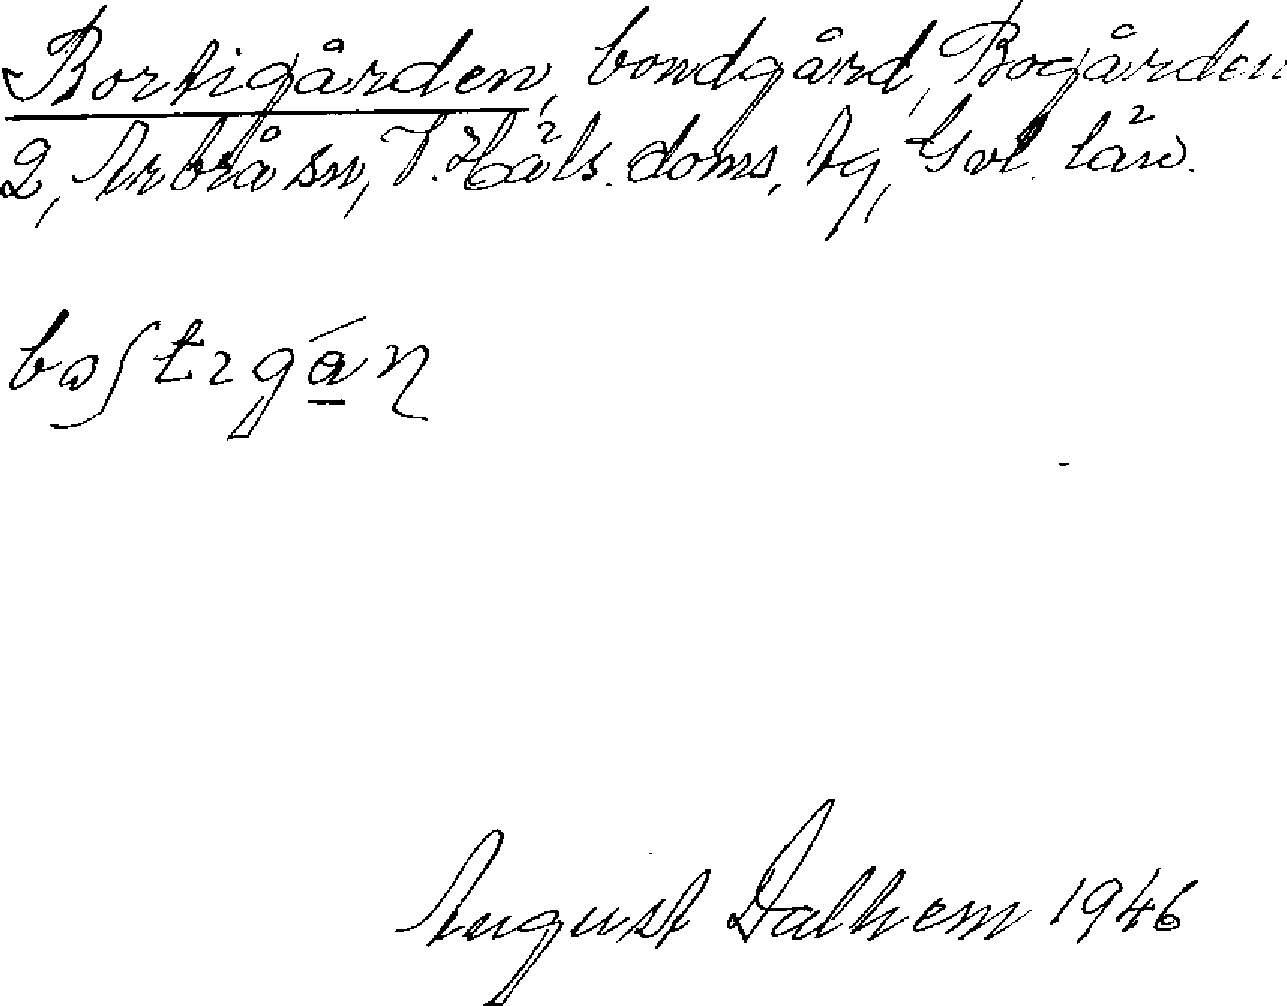 Bortigården, bondgård, Bogården
2, Arbrå sn, V. Häls. doms. tg, Gvl. län.
boʃtıgán
August Dalhem 1946